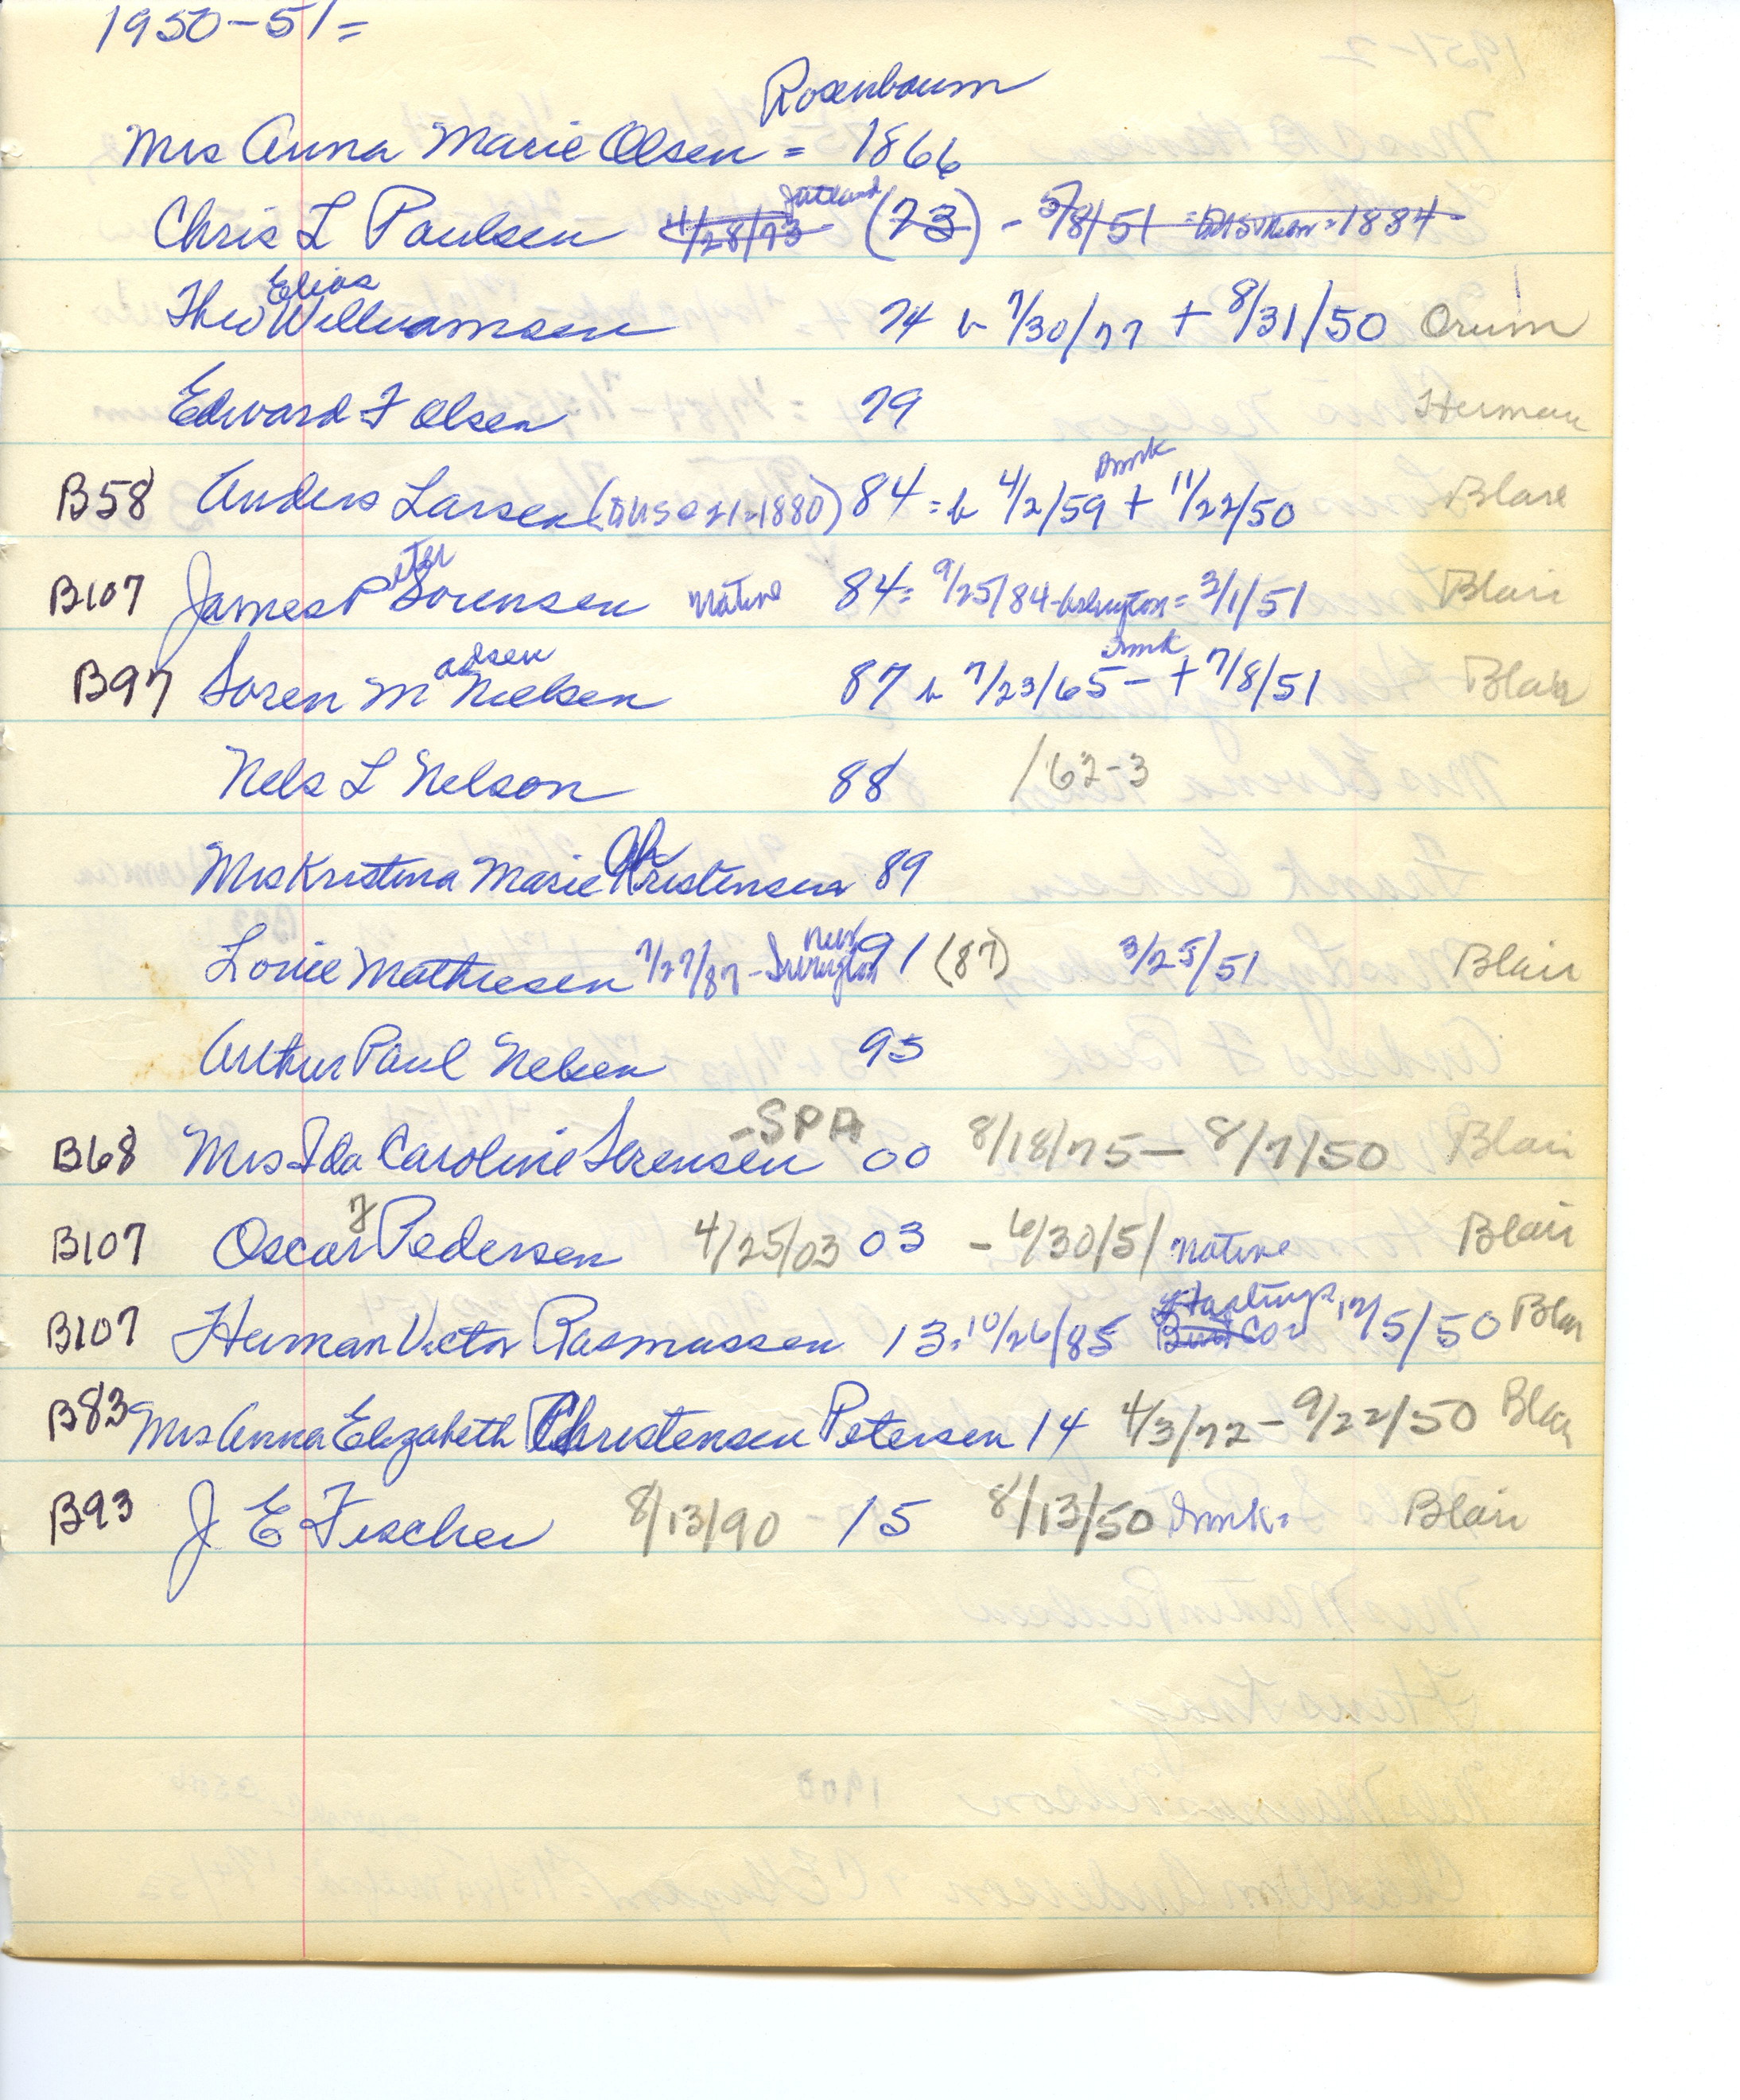 1950-51=
Rosenbaum
Mrs Anna Marie Olsen = 1866
Jutland
Chris L Paulsen 4/28/73 (73) - 5/8/51 = 1884
Elias
Theo Williamsen 74 b 7/30/77 + 8/31/50 Orum
Edward F Olsen 79 Herman
Dmrk
B58 Anders Larsen (in US 1880) 84 = b 4/2/59 + 11/22/50 Blair
eter
B107 James P Sorensen native 84 = 9/25/84 - Arlington = 3/1/51 Blair
adsen Dmrk
B97 Soren M Nielsen 87 b 7/23/65 - + 7/8/51 Blair
Nels L Nelson 88 /62-3
Ch
Mrs Kristina Marie Kristensen 89
new
Louie Mathiesen 7/27/87 - Irvington 91 (87) 3/25/51 Blair
Arthur Paul Nelsen 95
-SPA
B68 Mrs Ida Caroline Sorensen 00 8/18/75 - 8/7/50 Blair
F
B107 Oscar Pedersen 4/25/03 03 - 6/30/51 native Blair
Hastings
B107 Herman Victor Rasmussen 13 = 10/26/85 Burt Co = 12/5/50 Blair
B83 Mrs Anna Elizabeth Christensen Petersen 14 4/3/72 - 9/22/50 Blair
B93 J E Fischer 8/13/90 15 8/13/50 Dmrk = Blair